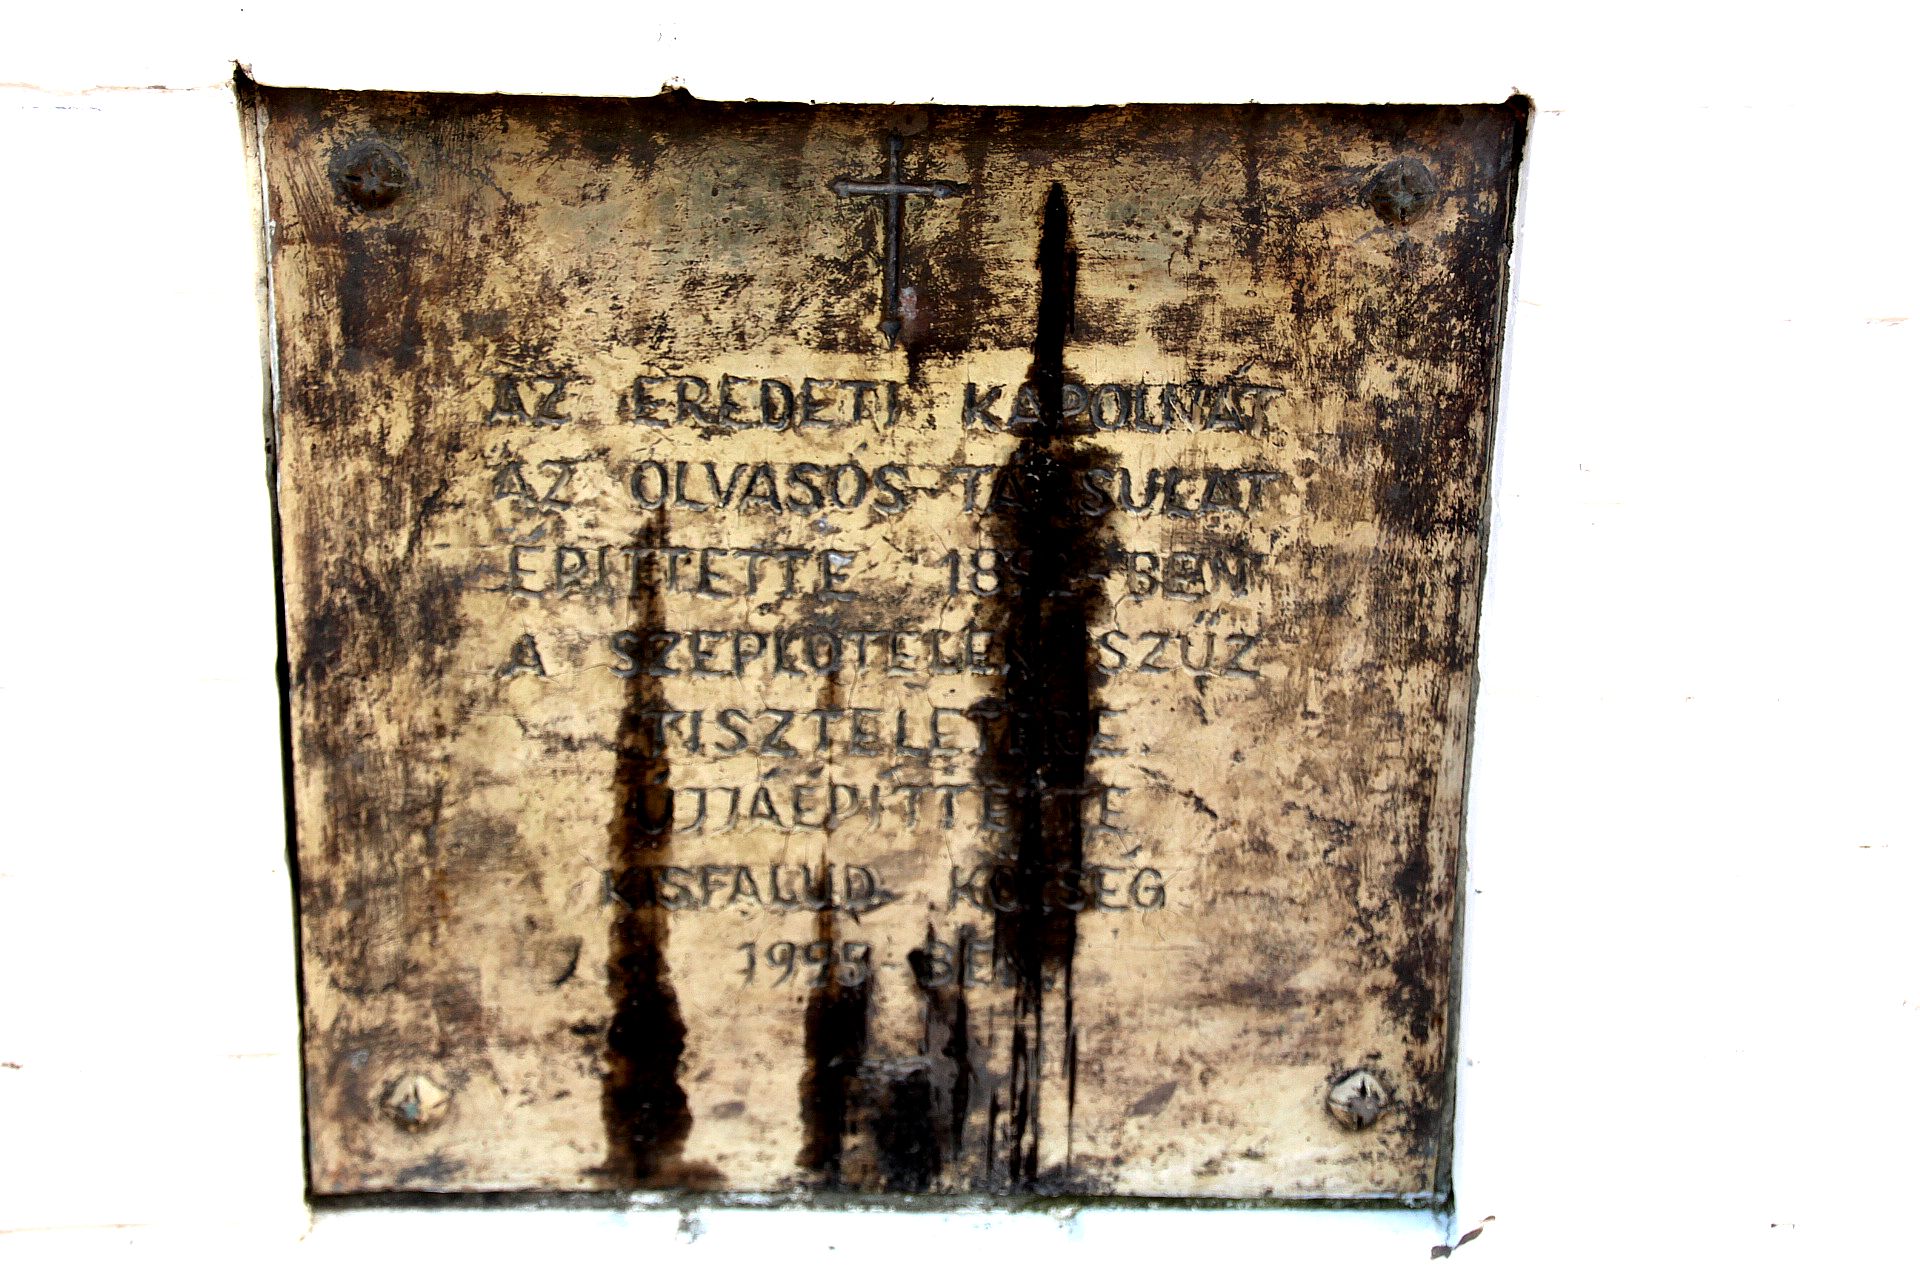 AZ EREDETI KÁPOLNÁT
AZ OLVASÓS-TÁRSULAT
ÉPÍTTETTE
A SZEPLŐTELEN SZŰZ
TISZTELETÉRE.
ÚJJÁÉPÍTTETTE
KISFALUD KÖZSÉG
1995-BEN.